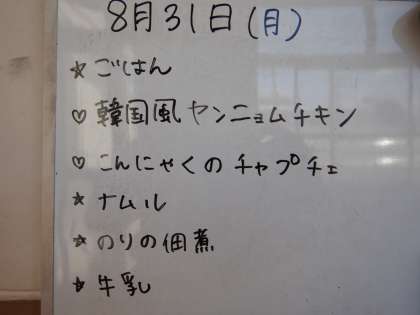 8月31日(月)
☆ごはん
♡韓国風ヤンニョムチキン
♡こんにゃくのチャプチェ
☆ナムル
☆のりの佃煮
☆牛乳